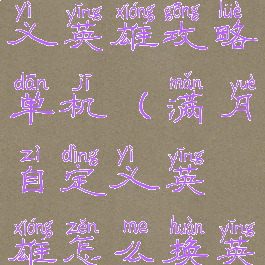 yì yīng xióng gōng lüè
义英雄攻略
dān jī mǎn yuè
单机（满月
zì dìng yì yīng
自定义英
xióng zěn me huàn yīng
雄怎么换英